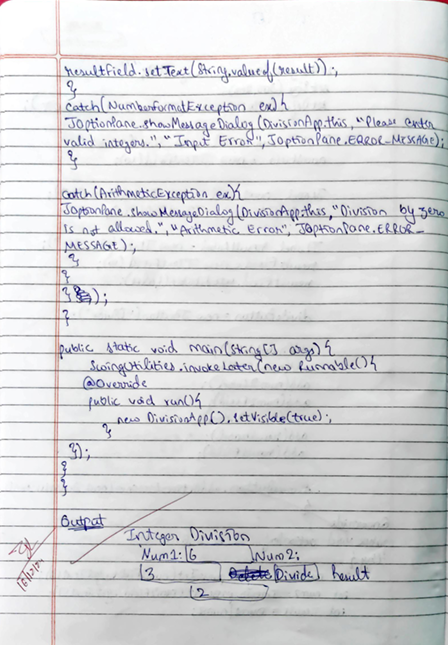 resultField.setText(String.valueOf(result));
}
catch(NumberFormatException ex){
JOptionPane.showMessageDialog(DivisionApp.this, "Please enter
valid integers.", "Input Error", JOptionPane.ERROR_MESSAGE);
}
catch(ArithmeticException ex){
JOptionPane.showMessageDialog(DivisionApp.this, "Division by zero
is not allowed.", "Arithmetic Error", JOptionPane.ERROR_
MESSAGE);
}
}
});
}
public static void main(String[] args){
SwingUtilities.invokeLater(new Runnable(){
@Override
public void run(){
new DivisionApp().setVisible(true);
}
});
}
}
Output
Integer Division
Num1: 6 Num2:
3 Divide Result
2